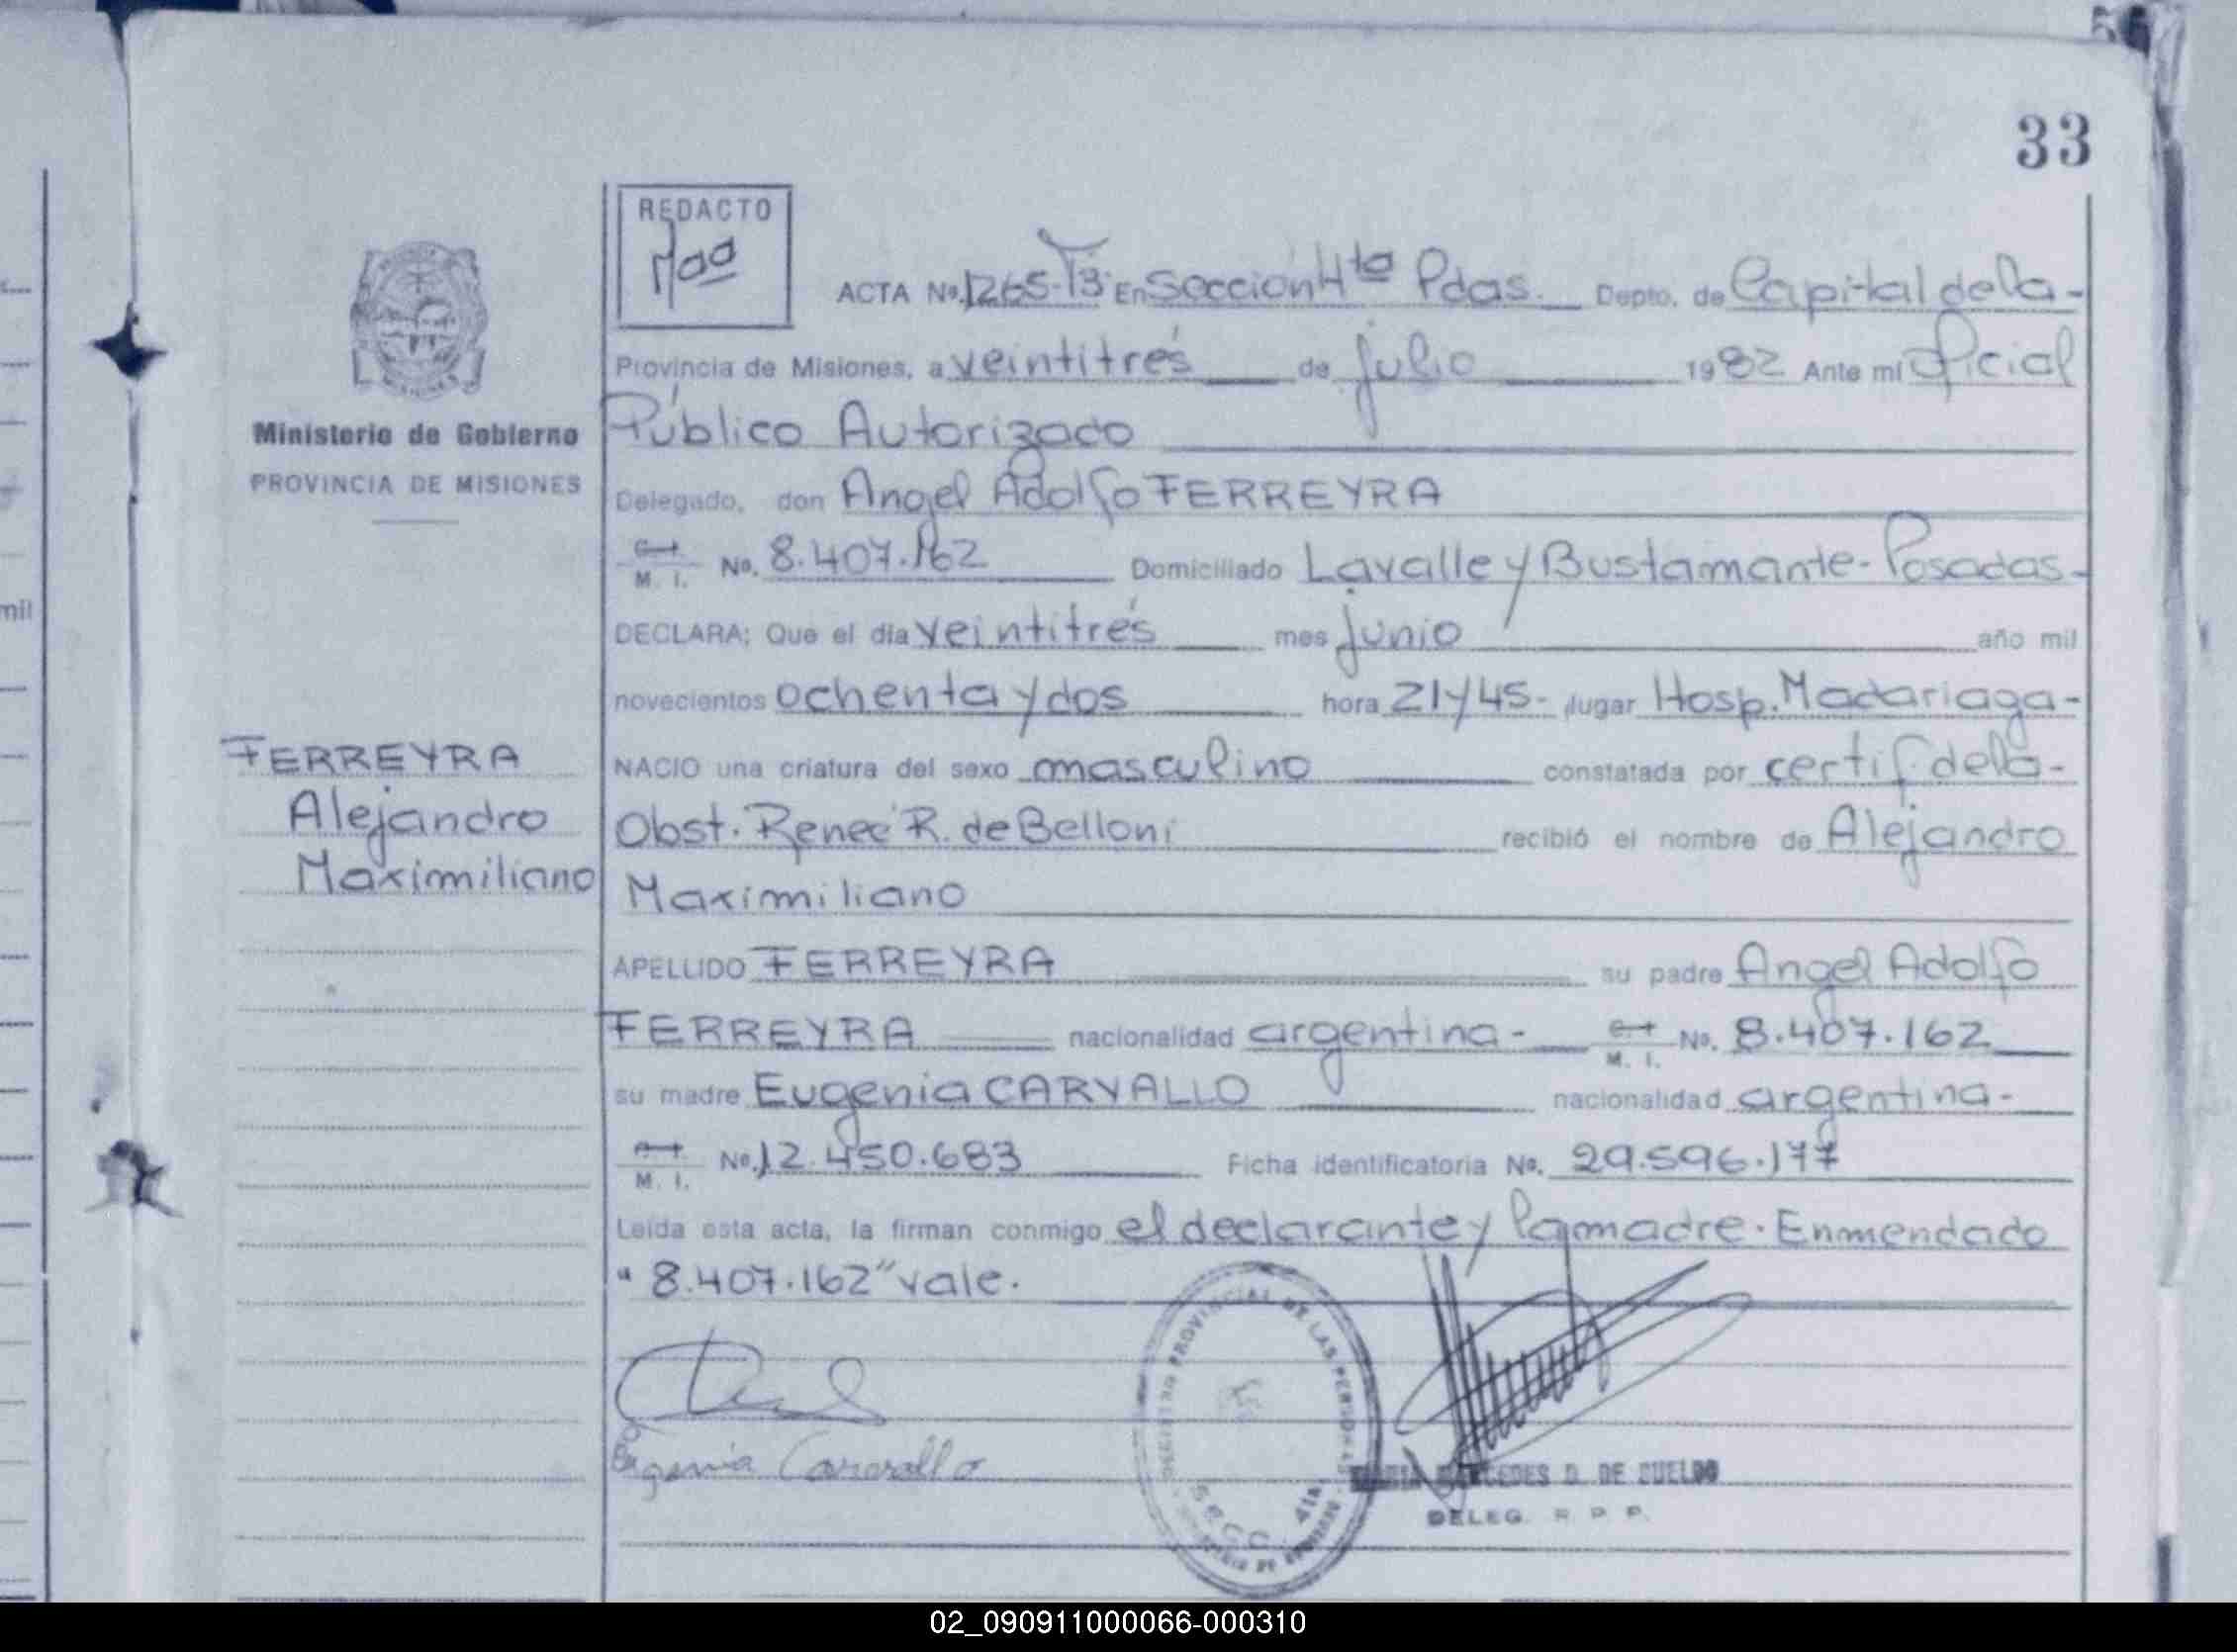 33
REDACTO
ACTA No. 1265-T3 En Sección 4ta Pdas. Depto. de Capital de la-
Provincia de Misiones, a veintitrés de julio 1982 Ante mí Oficial
Ministerio de Gobierno
Público Autorizado
PROVINCIA DE MISIONES
Delegado, don Angel Adolfo FERREYRA
M. I. No. 8.407.162 Domiciliado Lavalle y Bustamante-Posadas-
DECLARA; Que el día veintitrés mes junio año mil
novecientos ochenta y dos hora 21y45- lugar Hosp. Madariaga-
FERREYRA
Alejandro
Maximiliano
NACIO una criatura del sexo masculino constatada por certif. de la-
Obst. Reneé R. de Belloni recibió el nombre de Alejandro
Maximiliano
APELLIDO FERREYRA su padre Angel Adolfo
FERREYRA nacionalidad argentina- M. I. No. 8.407.162
su madre Eugenia CARVALLO nacionalidad argentina-
M. I. No. 12.450.683 Ficha identificatoria No. 29.596.177
Leída esta acta, la firman conmigo el declarante y la madre. Enmendado
"8.407.162" vale.
PROVINCIAL DE LAS PERSONAS
SECC. 4TA
Eugenia Carvallo
MARIA MERCEDES D. DE CUELDO
DELEG. R. P. P.
mil
02_090911000066-000310